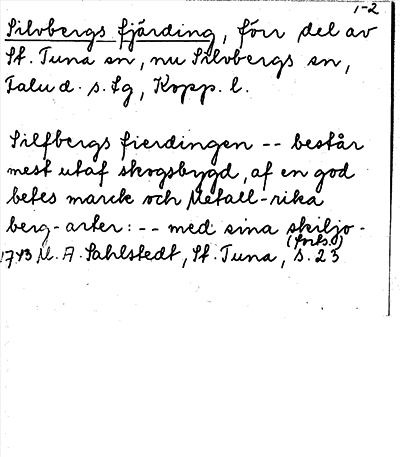 1-2
Silvbergs fjärding, förr del av
St. Tuna sn, nu Silvbergs sn,
Falu d. s. lg, Kopp. l.
Silfbergs fierdingen -- består
mest utaf skogsbygd, af en god
betes marck och Metall-rika
berg-arter: -- med sina skiljo-
(forts.)
1743 M. A. Sahlstedt, St. Tuna, s. 23